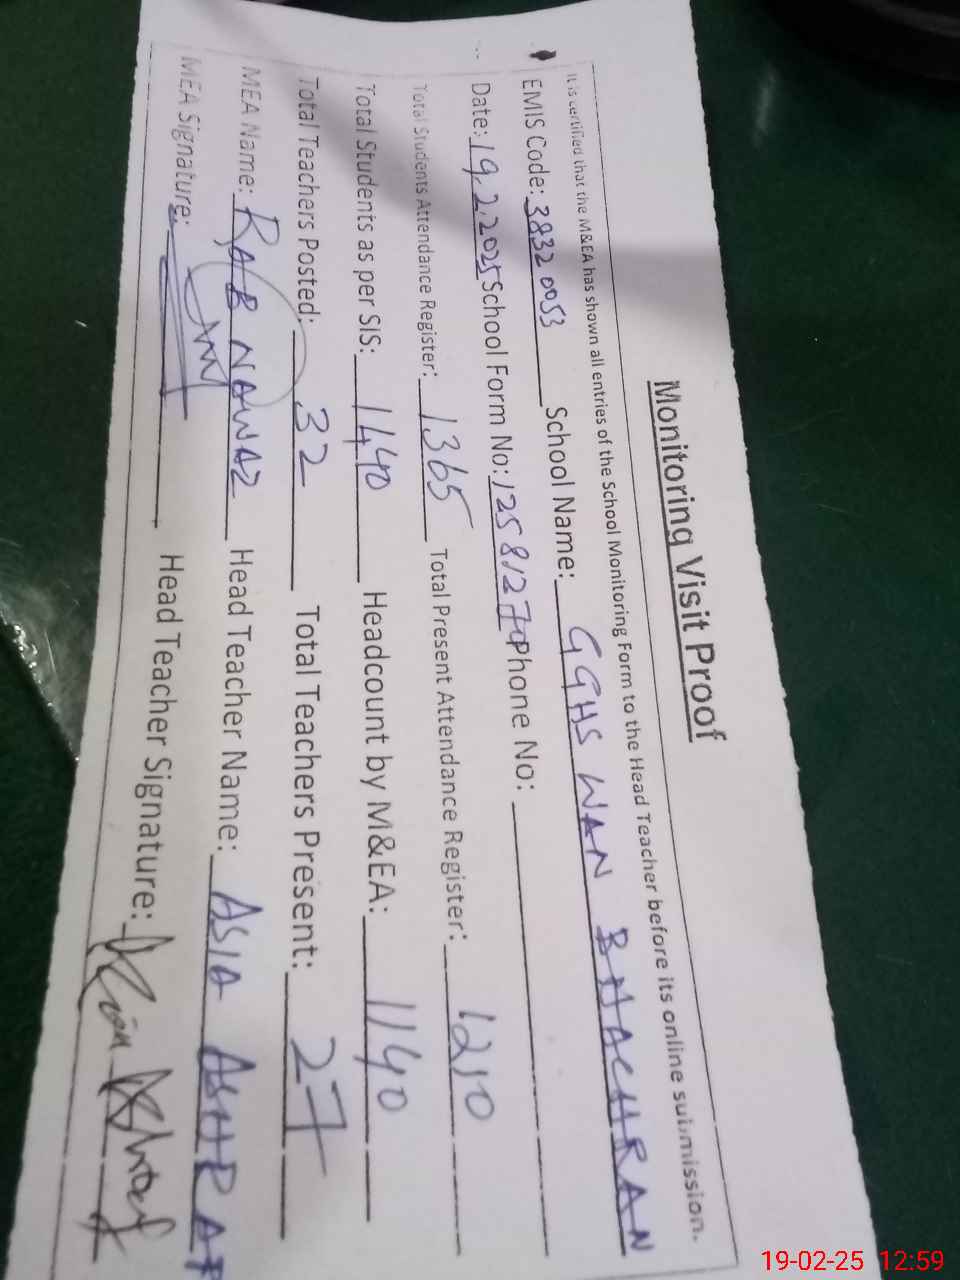 Monitoring Visit Proof
It is certified that the M&EA has shown all entries of the School Monitoring Form to the Head Teacher before its online submission.
EMIS Code: 38320053 School Name: GGHS WAN BHACHRAN
Date: 19.2.2025 School Form No: 12581270 Phone No:
Total Students Attendance Register: 1365 Total Present Attendance Register: 1210
Total Students as per SIS: 1440 Headcount by M&EA: 1140
Total Teachers Posted: 32 Total Teachers Present: 27
MEA Name: RAB NAWAZ Head Teacher Name: ASIA ASHRAF
MEA Signature: Head Teacher Signature: Asia Ashraf
19-02-25 12:59